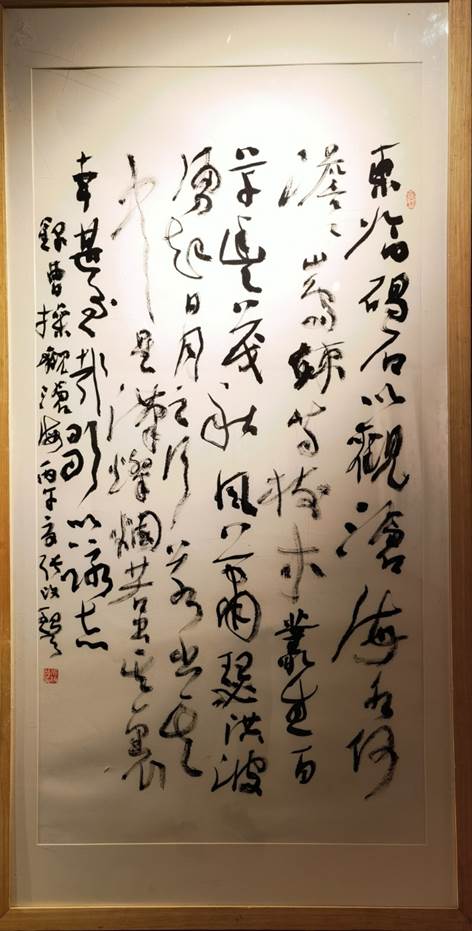 東臨碣石以觀滄海水何
澹澹山島竦峙樹木叢生百
草豐茂秋風蕭瑟洪波
湧起日月之行若出其
中星漢燦爛若出其裏
幸甚至哉歌以詠志
錄曹操觀滄海丙午張改琴